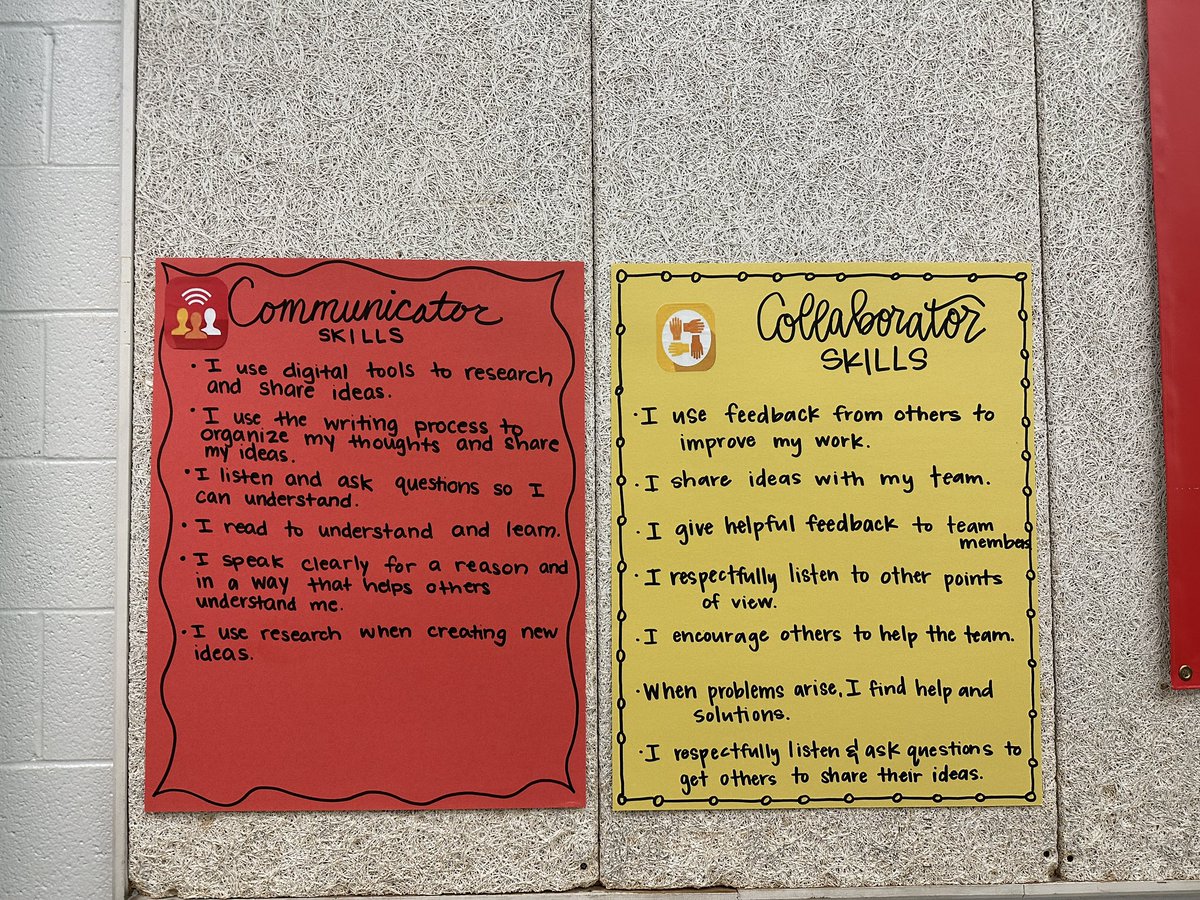 Communicator
SKILLS
• I use digital tools to research
and share ideas.
• I use the writing process to
organize my thoughts and share
my ideas.
• I listen and ask questions so I
can understand.
• I read to understand and learn.
• I speak clearly for a reason and
in a way that helps others
understand me.
• I use research when creating new
ideas.
Collaborator
SKILLS
• I use feedback from others to
improve my work.
• I share ideas with my team.
• I give helpful feedback to team
members
• I respectfully listen to other points
of view.
• I encourage others to help the team.
• When problems arise, I find help and
solutions.
• I respectfully listen & ask questions to
get others to share their ideas.